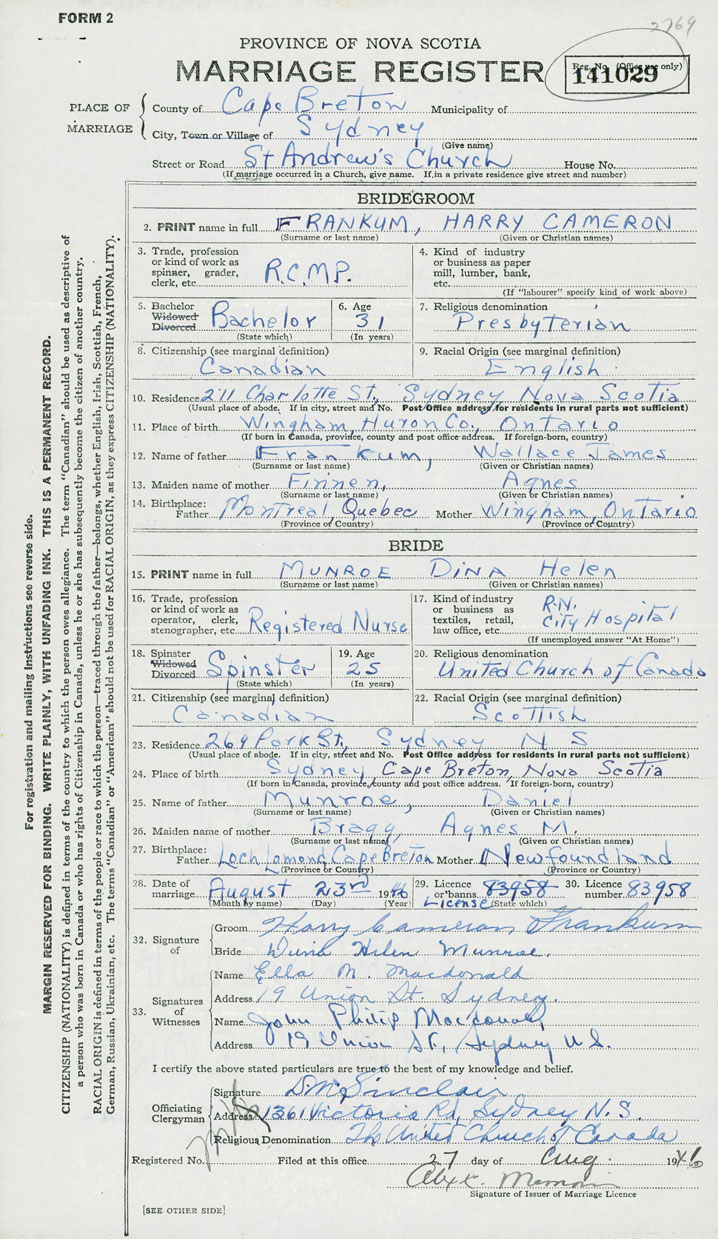 FORM 2
2769
PROVINCE OF NOVA SCOTIA
MARRIAGE REGISTER
Reg. No. (Office use only)
141029
PLACE OF MARRIAGE
County of Cape Breton Municipality of
City, Town or Village of Sydney
(Give name)
Street or Road St Andrew's Church House No.
(If marriage occurred in a Church, give name. If in a private residence give street and number)
BRIDEGROOM
2. PRINT name in full FRANKUM, HARRY CAMERON
(Surname or last name) (Given or Christian names)
3. Trade, profession or kind of work as spinner, grader, clerk, etc. R.C.M.P.
4. Kind of industry or business as paper mill, lumber, bank, etc.
(If "labourer" specify kind of work above)
5. Bachelor Widowed Divorced Bachelor
(State which)
6. Age 31
(In years)
7. Religious denomination Presbyterian
8. Citizenship (see marginal definition) Canadian
9. Racial Origin (see marginal definition) English
10. Residence 211 Charlotte St., Sydney Nova Scotia
(Usual place of abode. If in city, street and No. Post Office address for residents in rural parts not sufficient)
11. Place of birth Wingham, Huron Co., Ontario
(If born in Canada, province, county and post office address. If foreign-born, country)
12. Name of father Frankum, Wallace James
(Surname or last name) (Given or Christian names)
13. Maiden name of mother Finnen, Agnes
(Surname or last name) (Given or Christian names)
14. Birthplace: Father Montreal, Quebec Mother Wingham, Ontario
(Province or Country) (Province or Country)
BRIDE
15. PRINT name in full MUNROE DINA Helen
(Surname or last name) (Given or Christian names)
16. Trade, profession or kind of work as operator, clerk, stenographer, etc. Registered Nurse
17. Kind of industry or business as textiles, retail, law office, etc. R.N. City Hospital
(If unemployed answer "At Home")
18. Spinster Widowed Divorced Spinster
(State which)
19. Age 25
(In years)
20. Religious denomination United Church of Canada
21. Citizenship (see marginal definition) Canadian
22. Racial Origin (see marginal definition) Scottish
23. Residence 269 Park St., Sydney N S
(Usual place of abode. If in city, street and No. Post Office address for residents in rural parts not sufficient)
24. Place of birth Sydney, Cape Breton, Nova Scotia
(If born in Canada, province, county and post office address. If foreign-born, country)
25. Name of father Munroe, Daniel
(Surname or last name) (Given or Christian names)
26. Maiden name of mother Bragg, Agnes M.
(Surname or last name) (Given or Christian names)
27. Birthplace: Father Loch Lomond Cape Breton Mother Newfoundland
(Province or Country) (Province or Country)
28. Date of marriage August 23rd 1946
(Month by name) (Day) (Year)
29. Licence or banns 83958 License (State which)
30. Licence number 83958
32. Signature of
Groom Harry Cameron Frankum
Bride Dina Helen Munroe.
33. Signatures of Witnesses
Name Ella M. Macdonald
Address 19 Union St. Sydney.
Name John Philip Macdonald
Address 19 Union St, Sydney N.S.
I certify the above stated particulars are true to the best of my knowledge and belief.
Officiating Clergyman
Signature D. M. Sinclair
Address 1361 Victoria Rd, Sydney N.S.
Religious Denomination The United Church of Canada
Registered No. Filed at this office 27 day of Aug. 1946
Signature of Issuer of Marriage Licence
[SEE OTHER SIDE]
For registration and mailing instructions see reverse side.
MARGIN RESERVED FOR BINDING. WRITE PLAINLY, WITH UNFADING INK. THIS IS A PERMANENT RECORD.
CITIZENSHIP (NATIONALITY) is defined in terms of the country to which the person owes allegiance. The term "Canadian" should be used as descriptive of
a person who was born in Canada or who has rights of Citizenship in Canada, unless he or she has subsequently become the citizen of another country.
RACIAL ORIGIN is defined in terms of the people or race to which the person—traced through the father—belongs, whether English, Irish, Scottish, French,
German, Russian, Ukrainian, etc. The terms "Canadian" or "American" should not be used for RACIAL ORIGIN, as they express CITIZENSHIP (NATIONALITY).